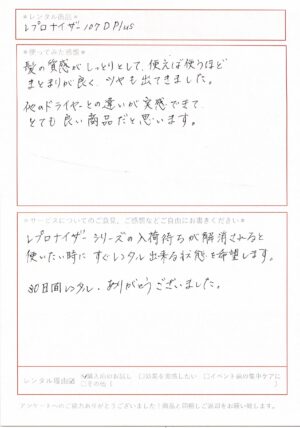 ＊レンタル商品＊
レプロナイザー107 D Plus
＊使ってみた感想＊
髪の質感がしっとりとして、使えば使うほど
まとまりが良く、ツヤも出てきました。
他のドライヤーとの違いが実感できて、
とても良い商品だと思います。
＊サービスについてのご意見、ご感想などご自由にお書きください＊
レプロナイザーシリーズの入荷待ちが解消されると
使いたい時にすぐレンタル出来る状態を希望します。
30日間レンタル・ありがとうございました。
レンタル理由☑
☑購入前のお試し □効果を実感したい □イベント前の集中ケアに
□その他（ ）
アンケートへのご協力ありがとうございました！商品と同梱しご返却をお願い致します。